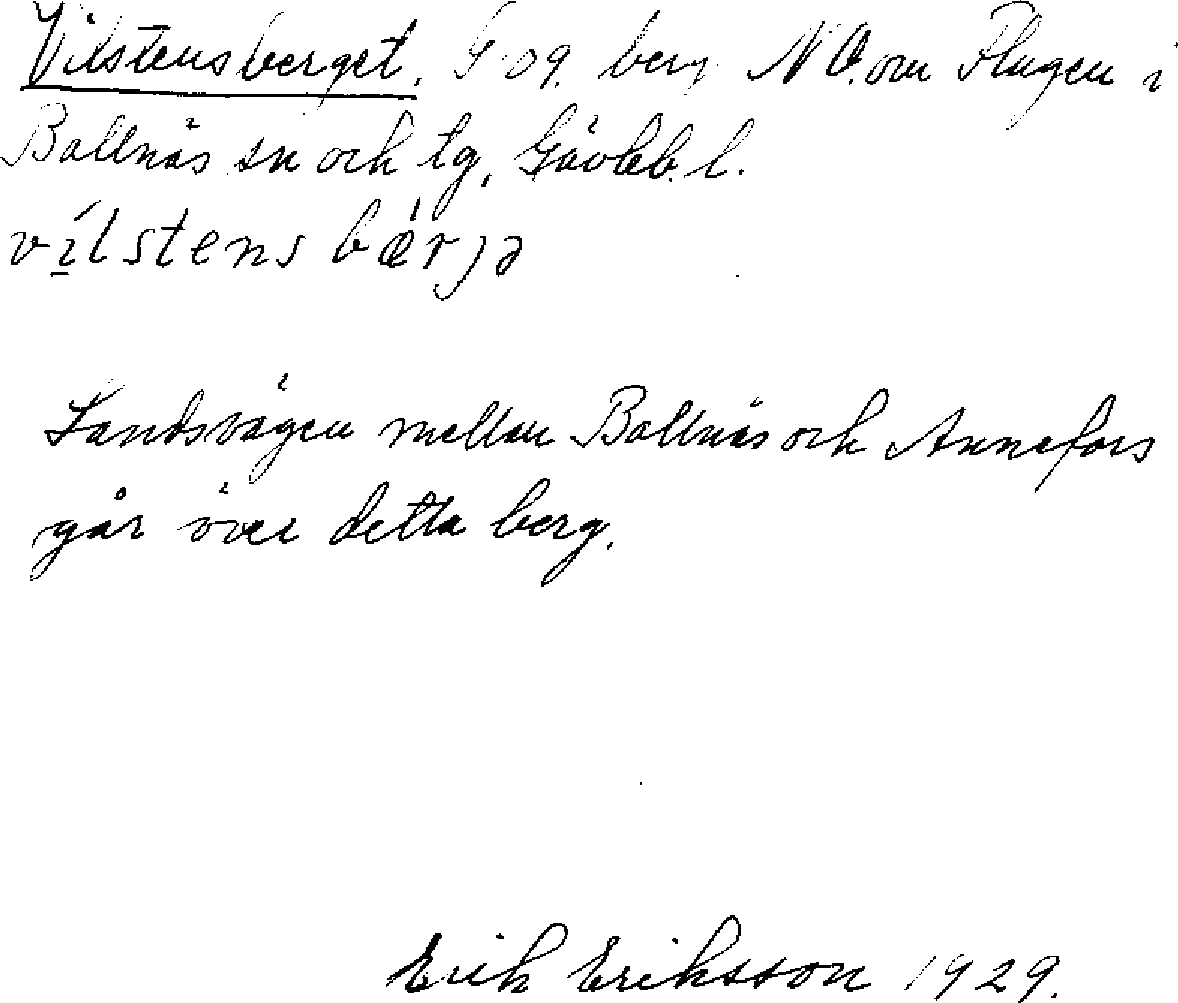 Vilstensberget. G 09. berg NO.om Flugen i
Bollnäs sn och tg, Gävleb. l.
vílstens bǽrjə
Landsvägen mellan Bollnäs och Annefors
går över detta berg.
Erik Eriksson 1929.